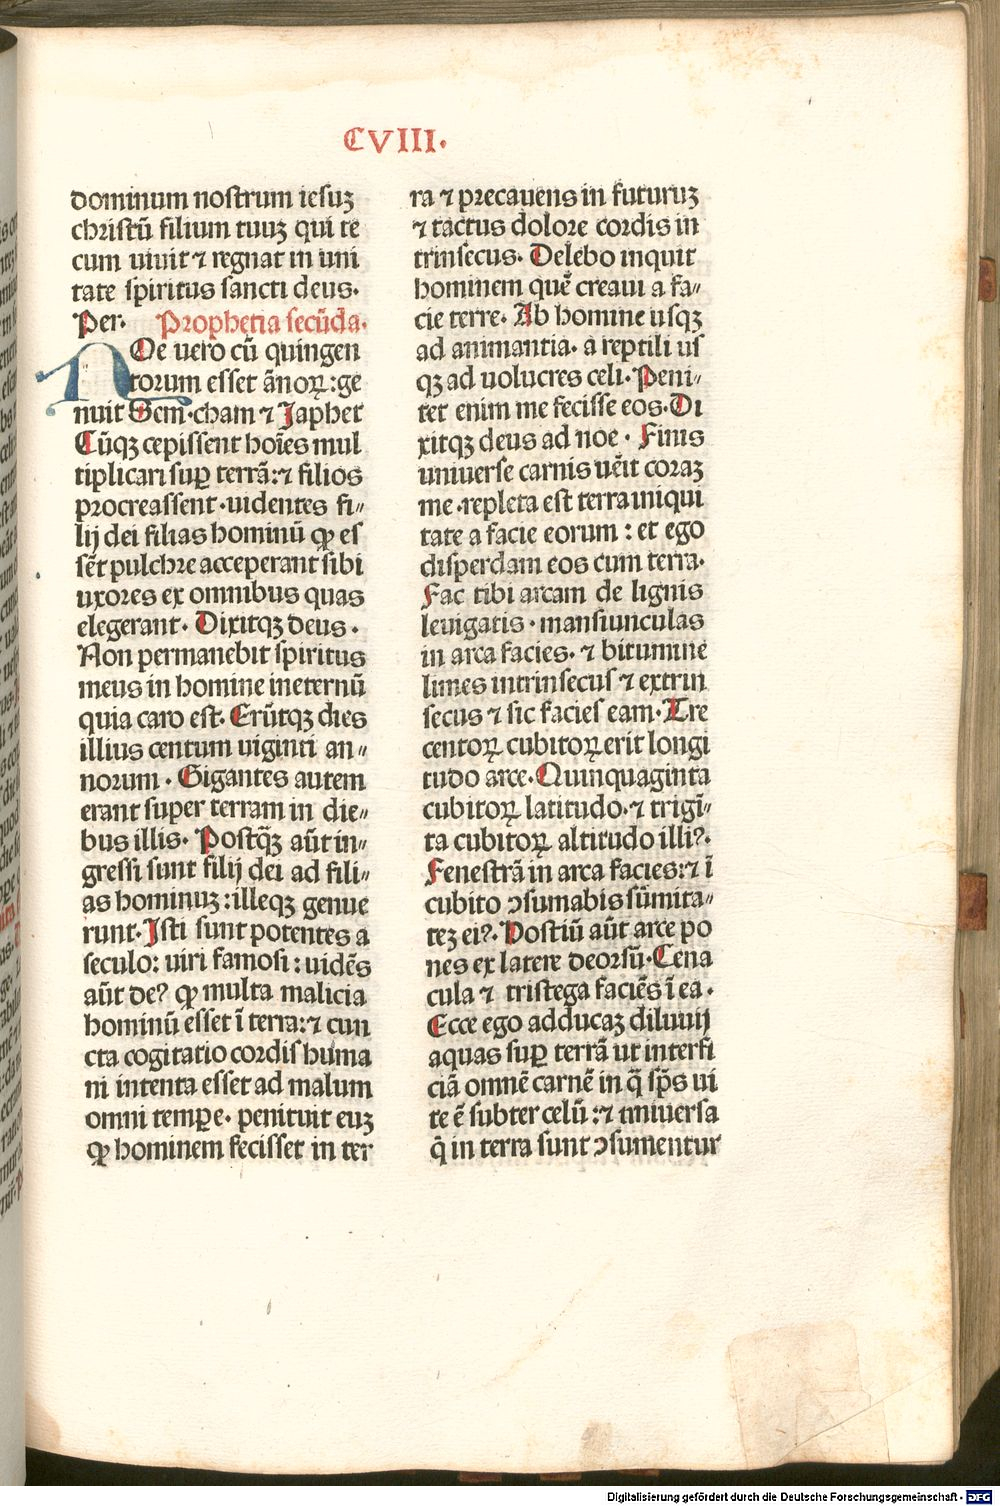 CVIII.
dominum nostrum iesuꝫ
christū filium tuuꝫ qui te
cum uiuit ⁊ regnat in uni
tate spiritus sancti deus.
Per. Prophetia secūda.
NOe uero cū quingen
torum esset ānoꝝ: ge
nuit Sem. cham ⁊ Japhet
Cūqꝫ cepissent hoīes mul
tiplicari suꝑ terrā: ⁊ filios
procreassent. uidentes fi⸗
lij dei filias hominū ꝙ es
sēt pulchre acceperant sibi
uxores ex omnibus quas
elegerant. Dixitqꝫ deus.
Non permanebit spiritus
meus in homine ineternū
quia caro est. Erūtqꝫ dies
illius centum uiginti an⸗
norum. Gigantes autem
erant super terram in die⸗
bus illis. Postqꝫ̄ aūt in⸗
gressi sunt filij dei ad fili⸗
as hominuꝫ: illeqꝫ genue
runt. Isti sunt potentes a
seculo: uiri famosi: uidēs
aūt deꝰ ꝙ multa malicia
hominū esset ī terra: ⁊ cun
cta cogitatio cordis huma
ni intenta esset ad malum
omni temꝑe. penituit euꝫ
ꝙ hominem fecisset in ter
ra ⁊ precauens in futuruꝫ
⁊ tactus dolore cordis in
trinsecus. Delebo inquit
hominem quē creaui a fa⸗
cie terre. Ab homine usqꝫ
ad animantia. a reptili us
qꝫ ad uolucres celi. Peni⸗
tet enim me fecisse eos. Di
xitqꝫ deus ad noe. Finis
uniuerse carnis uēit coraꝫ
me. repleta est terra iniqui
tate a facie eorum: et ego
disperdam eos cum terra.
Fac tibi arcam de lignis
leuigatis. mansiunculas
in arca facies. ⁊ bitumine
limes intrinsecus ⁊ extrin
secus ⁊ sic facies eam. Tre
centoꝝ cubitoꝝ erit longi
tudo arce. Quinquaginta
cubitoꝝ latitudo. ⁊ trigī⸗
ta cubitoꝝ altitudo illiꝰ.
Fenestrā in arca facies: ⁊ ī
cubito ꝯsumabis sūmita⸗
teꝫ eiꝰ. Hostiū aūt arce po
nes ex latere deorsū. Cena
cula ⁊ tristega faciēs ī ea.
Ecce ego adducaꝫ diluuij
aquas suꝑ terrā ut interfi
ciā omnē carnē in q̄ sp̄s ui
te ē subter celū: ⁊ uniuersa
q̄ in terra sunt ꝯsumentur
Digitalisierung gefördert durch die Deutsche Forschungsgemeinschaft - DFG